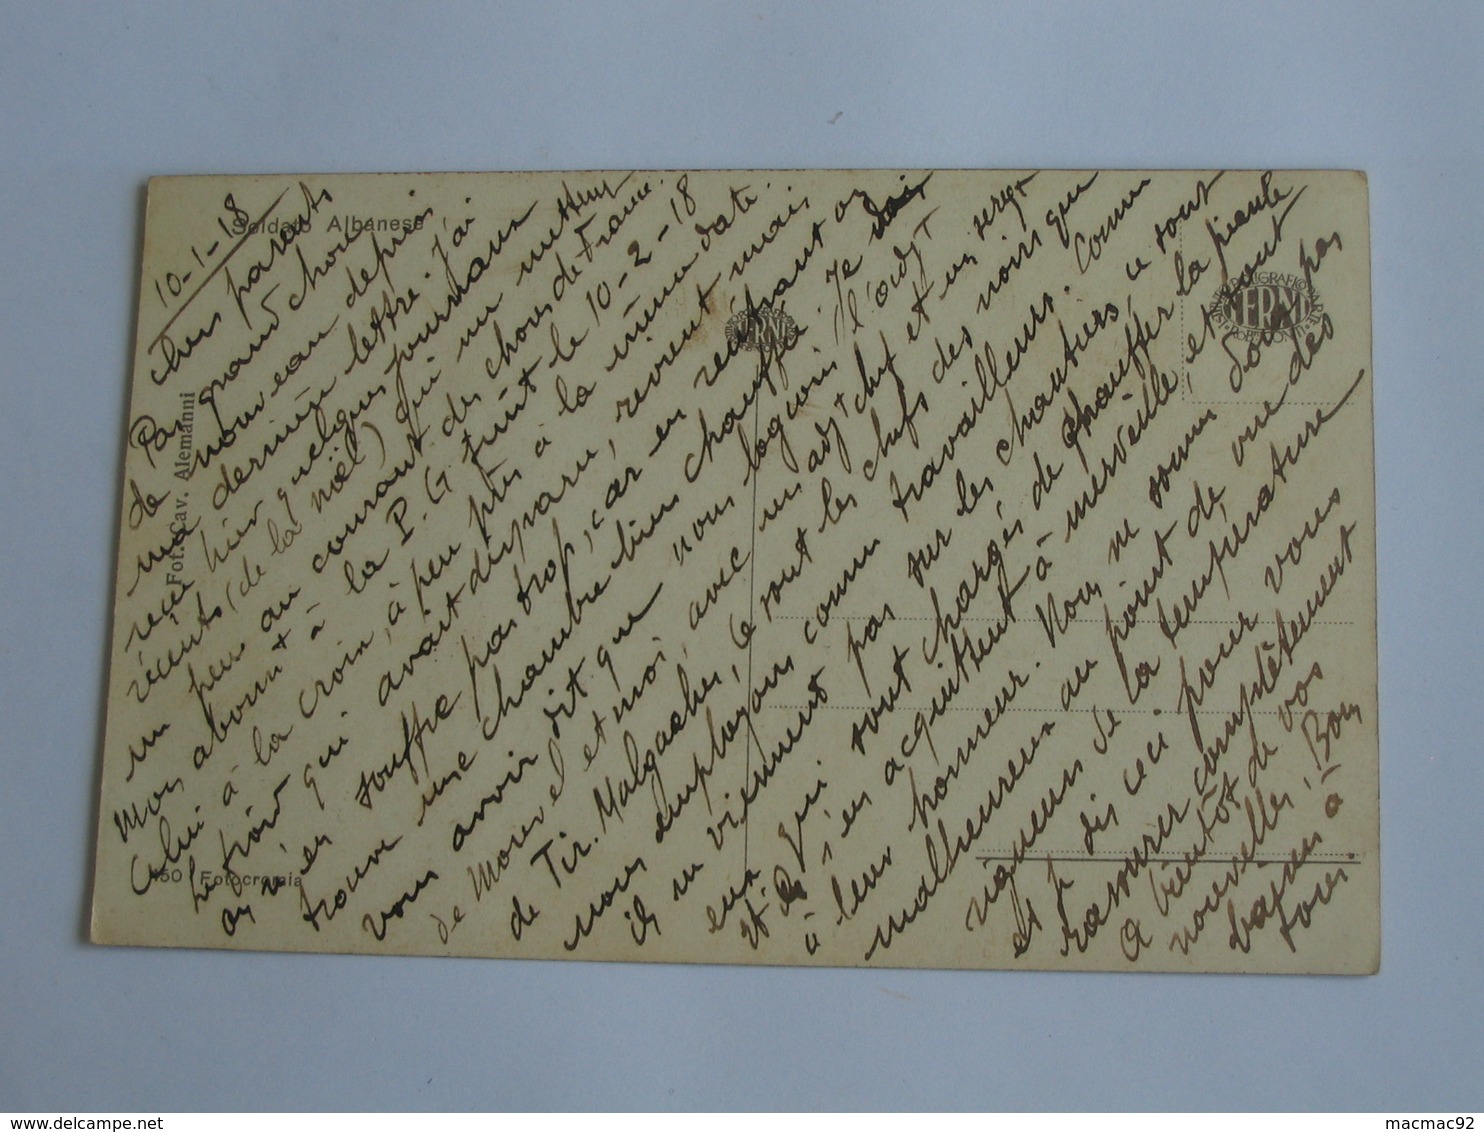 10-1-18
Chers parents
Pas grand chose
de nouveau depuis
ma dernière lettre. J'ai
reçu hier quelques journaux
récents (de la noël) qui me mettent
un peu au courant des choses de France.
Mon abonnt à la P. G. finit le 10-2-18
Celui à la Croix, à peu près à la même date.
Le froid qui avait disparu, revient mais
on n'en souffre pas trop, car en rentrant on
trouve une chambre bien chauffée. Je dois
vous avoir dit que nous logeons l'adjt
de Morvel et moi, avec un adjt chef et un sergt
de Tir. Malgaches, ce sont les chefs des noirs que
nous employons comme travailleurs. Comme
ils ne viennent pas sur les chantiers, ce sont
eux qui sont chargés de chauffer la piaule
et ils s'en acquittent à merveille, et tout
à leur honneur. Nous ne sommes donc pas
malheureux au point de vue des
rigueurs de la température
et je dis ceci pour vous
rassurer complètement
A bientôt de vos
nouvelles. Bons
baisers à
tous.
Soldato Albanese
Fot. Cav. Alemanni
150 Fotocromia
TERNI
macmac92